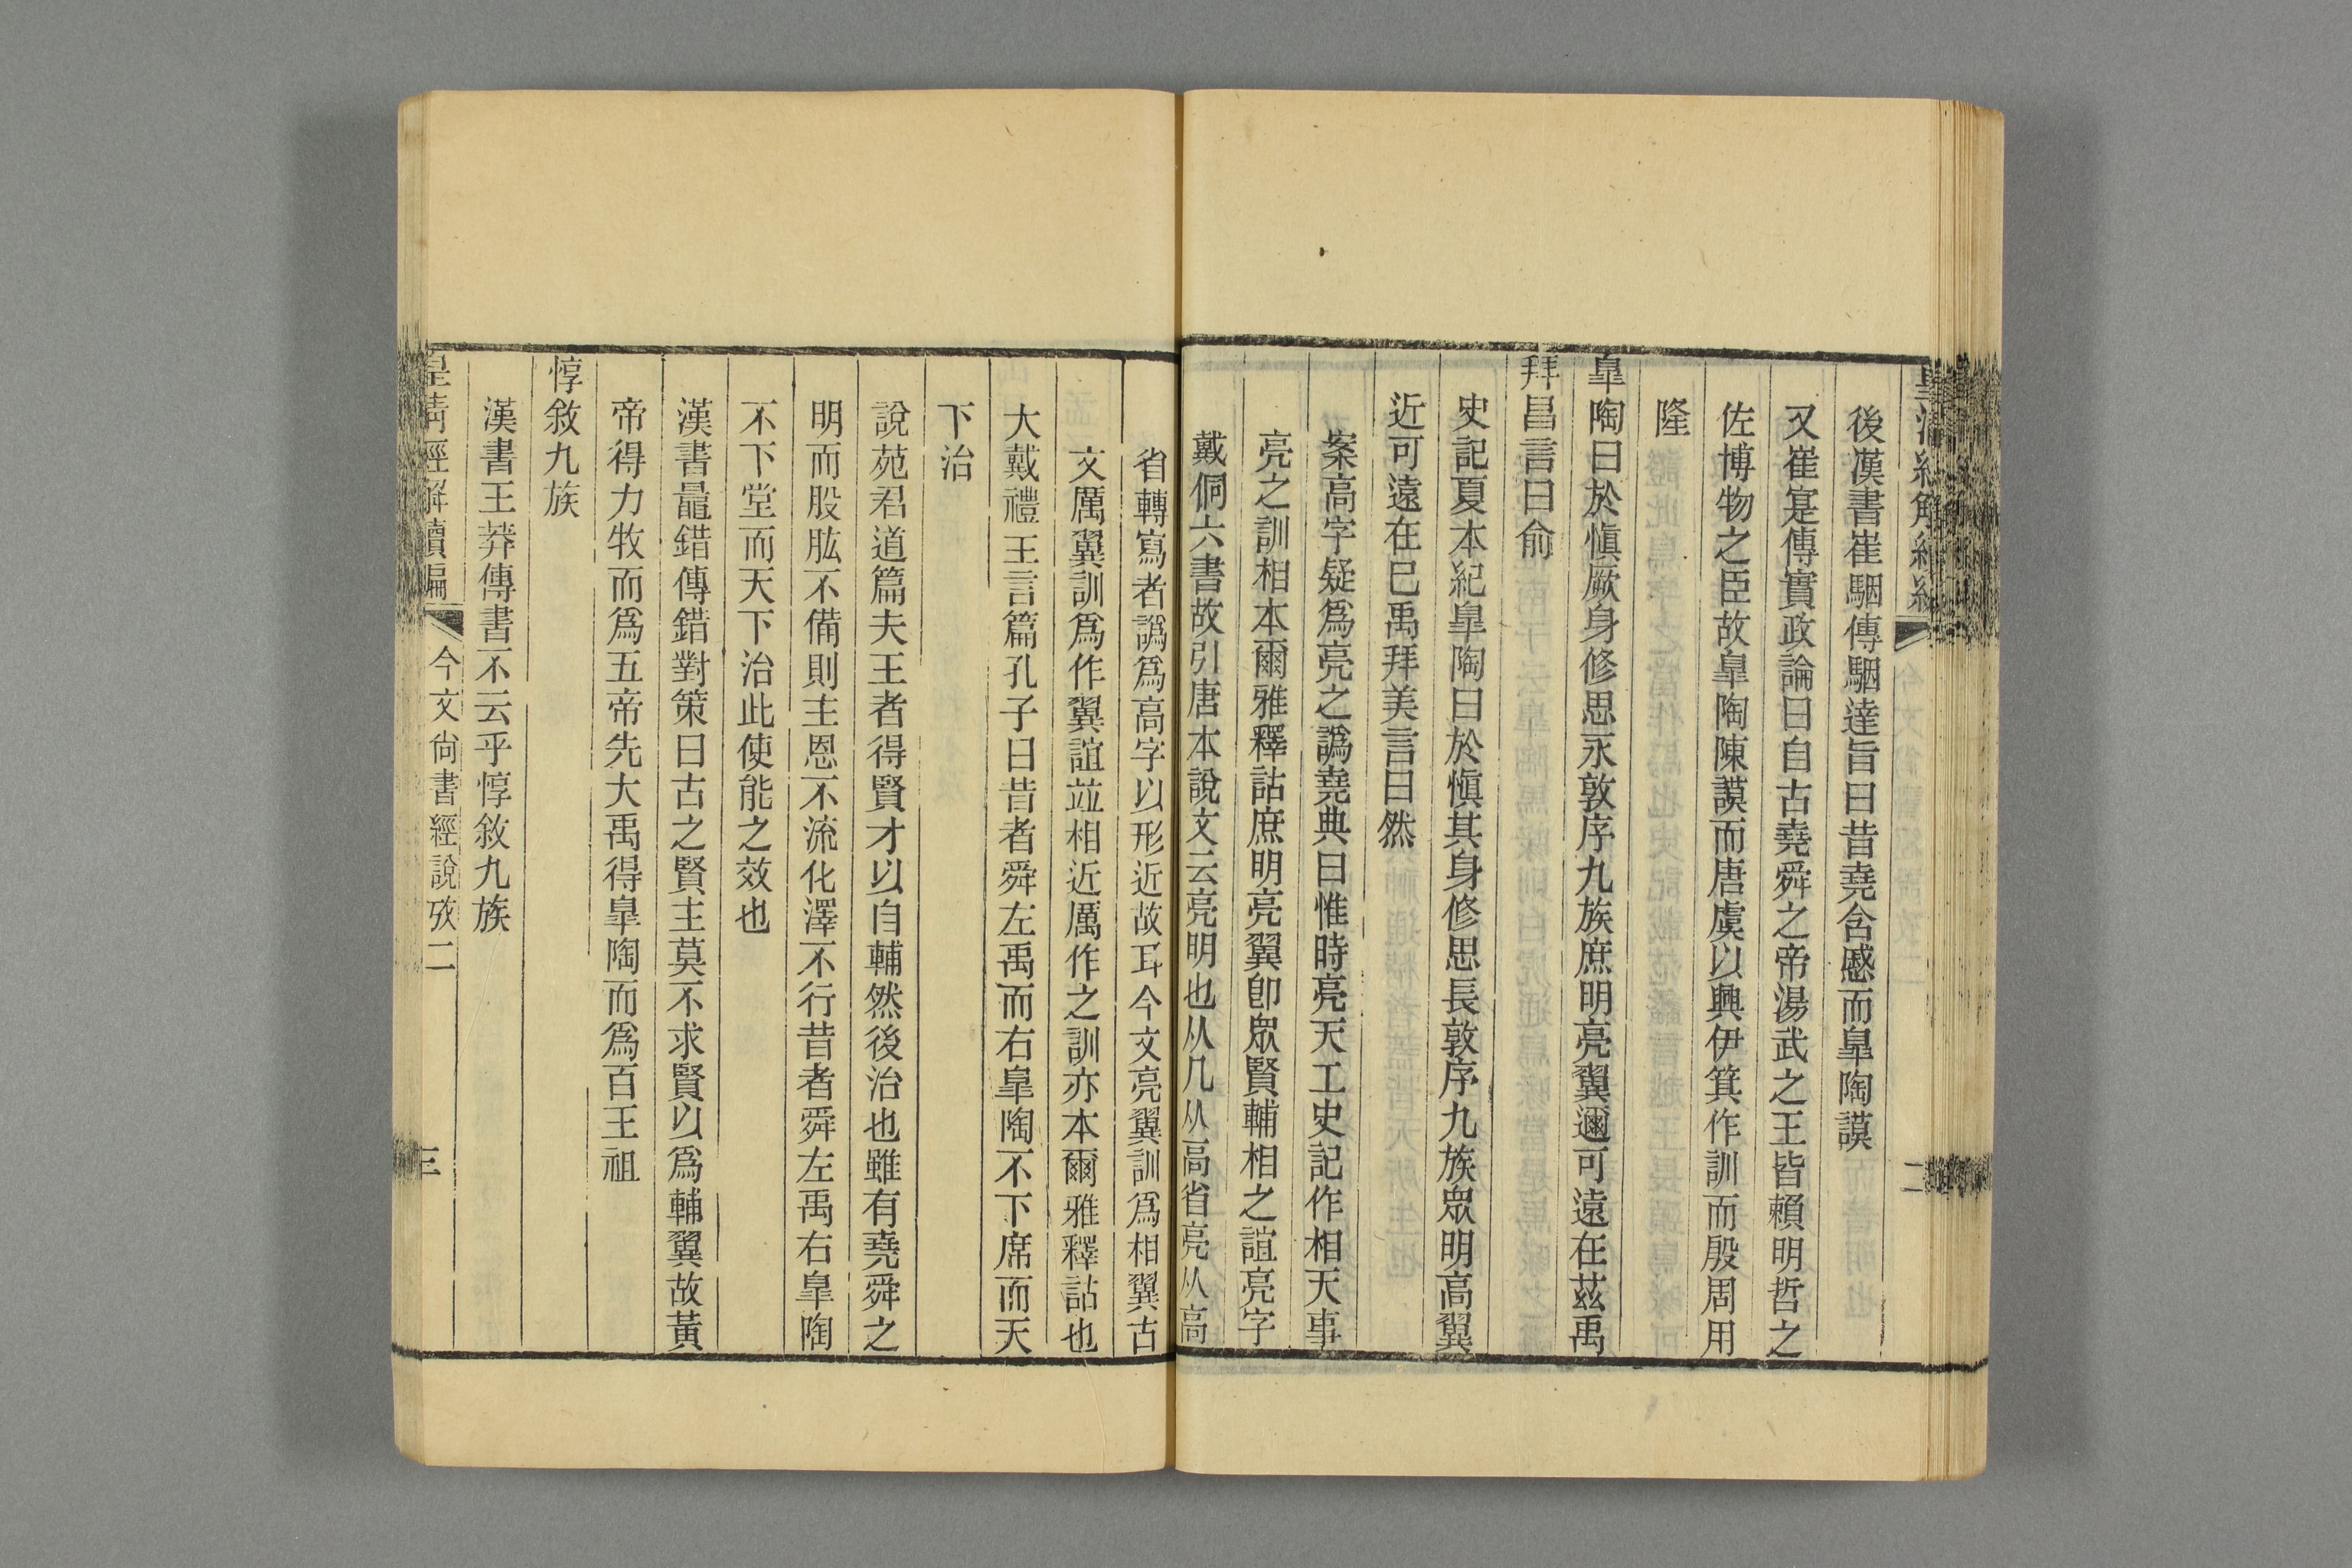 後漢書崔駰傳駰達旨曰昔堯含慼而皐陶謨
又崔寔傳實政論曰自古堯舜之帝湯武之王皆賴明哲之
佐博物之臣故皐陶陳謨而唐虞以興伊箕作訓而殷周用
隆
皐陶曰於愼厥身修思永敦序九族庶明亮翼邇可遠在茲禹
拜昌言曰俞
史記夏本紀皐陶曰於愼其身修思長敦序九族眾明高翼
近可遠在已禹拜美言曰然
案高字疑爲亮之譌堯典曰惟時亮天工史記作相天事
亮之訓相本爾雅釋詁庶明亮翼卽眾賢輔相之誼亮字
戴侗六書故引唐本說文云亮明也从几从高省亮从高
省轉寫者譌爲高字以形近故耳今文亮翼訓爲相翼古
文厲翼訓爲作翼誼竝相近厲作之訓亦本爾雅釋詁也
大戴禮王言篇孔子曰昔者舜左禹而右皐陶不下席而天
下治
說苑君道篇夫王者得賢才以自輔然後治也雖有堯舜之
明而股肱不備則主恩不流化澤不行昔者舜左禹右皐陶
不下堂而天下治此使能之效也
漢書鼂錯傳錯對策曰古之賢主莫不求賢以爲輔翼故黃
帝得力牧而爲五帝先大禹得皐陶而爲百王祖
惇敘九族
漢書王莽傳書不云乎惇敘九族
皇清經解續編 今文尙書經說攷二 三